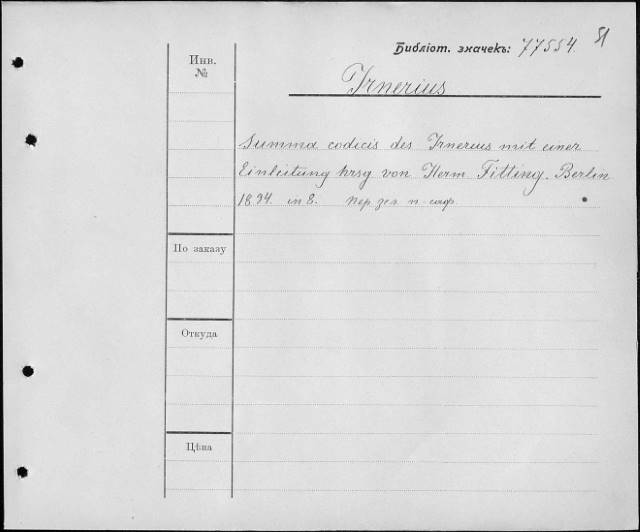 51
Библіот. значекъ: 77554.
Инв.
№
Irnerius
Summa codicis des Irnerius mit einer
Einleitung hrsg von Herm Fitting. Berlin
1894. in 8. пер зел п-саф.
По заказу
Откуда
Цѣна